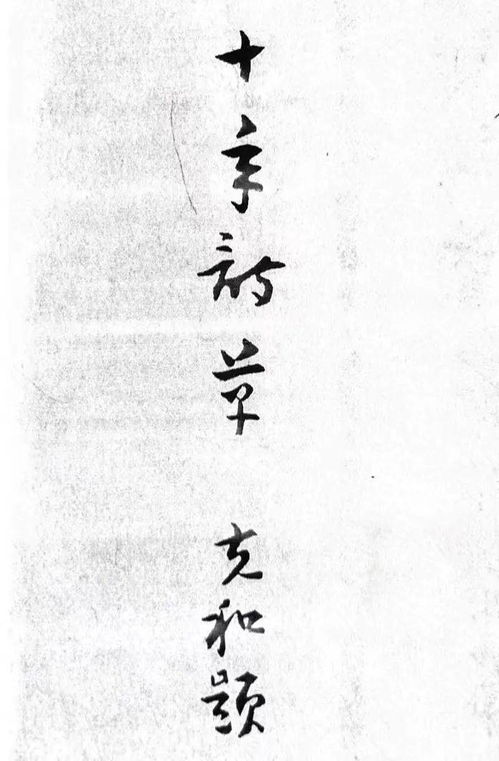 十年詩草
充和題